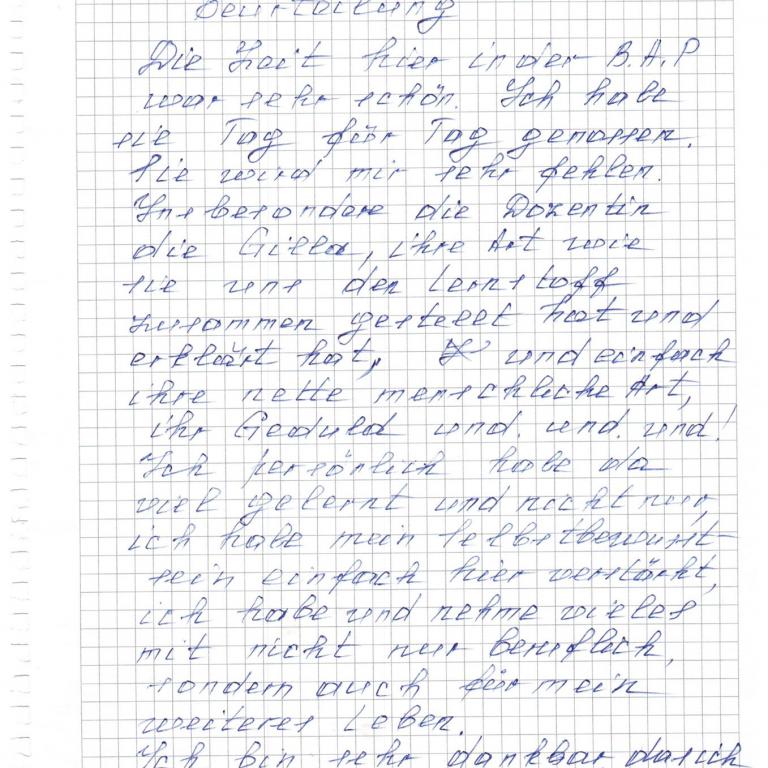 Beurteilung
Die Zeit hier in der B.A.P
war sehr schön. Ich habe
sie Tag für Tag genossen.
Sie wird mir sehr fehlen.
Insbesondere die Dozentin
die Gilla, ihre Art wie
sie uns den Lernstoff
zusammen gestellt hat und
erklärt hat, und einfach
ihre nette menschliche Art,
ihr Geduld und. und. und!
Ich persönlich habe da
viel gelernt und nicht nur,
ich habe mein Selbstbewusst-
sein einfach hier verstärkt,
ich habe und nehme vieles
mit nicht nur beruflich,
sondern auch für mein
weiteres Leben.
Ich bin sehr dankbar das ich